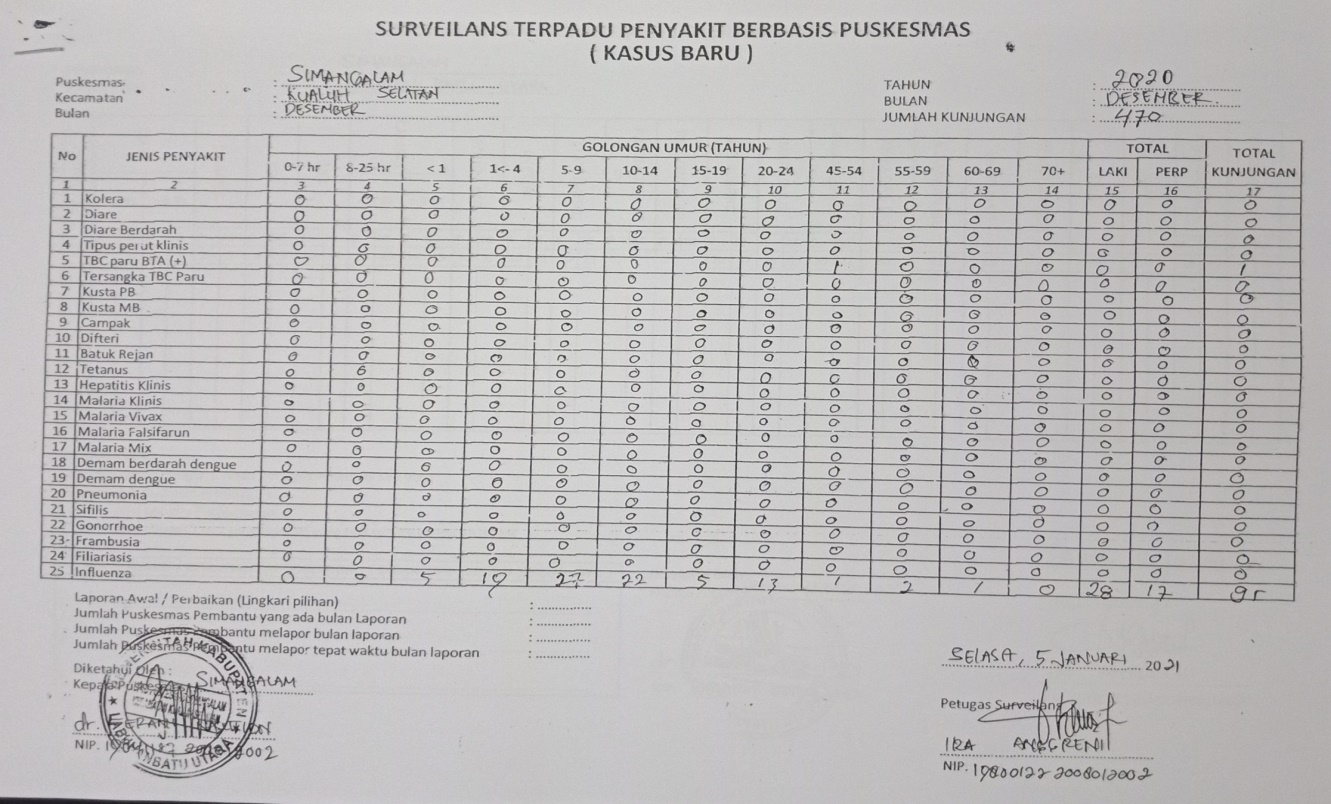 SURVEILANS TERPADU PENYAKIT BERBASIS PUSKESMAS
( KASUS BARU )
Puskesmas : SIMANGALAM TAHUN : 2020
Kecamatan : KUALUH SELATAN BULAN : DESEMBER
Bulan : DESEMBER JUMLAH KUNJUNGAN : 470
No JENIS PENYAKIT GOLONGAN UMUR (TAHUN) TOTAL TOTAL KUNJUNGAN
0-7 hr 8-25 hr < 1 1<- 4 5-9 10-14 15-19 20-24 45-54 55-59 60-69 70+ LAKI PERP
1 2 3 4 5 6 7 8 9 10 11 12 13 14 15 16 17
1 Kolera 0 0 0 0 0 0 0 0 0 0 0 0 0 0 0
2 Diare 0 0 0 0 0 0 0 0 0 0 0 0 0 0 0
3 Diare Berdarah 0 0 0 0 0 0 0 0 0 0 0 0 0 0 0
4 Tipus perut klinis 0 0 0 0 0 0 0 0 0 0 0 0 0 0 0
5 TBC paru BTA (+) 0 0 0 0 0 0 0 0 1 0 0 0 0 0 1
6 Tersangka TBC Paru 0 0 0 0 0 0 0 0 0 0 0 0 0 0 0
7 Kusta PB 0 0 0 0 0 0 0 0 0 0 0 0 0 0 0
8 Kusta MB 0 0 0 0 0 0 0 0 0 0 0 0 0 0 0
9 Campak 0 0 0 0 0 0 0 0 0 0 0 0 0 0 0
10 Difteri 0 0 0 0 0 0 0 0 0 0 0 0 0 0 0
11 Batuk Rejan 0 0 0 0 0 0 0 0 0 0 0 0 0 0 0
12 Tetanus 0 0 0 0 0 0 0 0 0 0 0 0 0 0 0
13 Hepatitis Klinis 0 0 0 0 0 0 0 0 0 0 0 0 0 0 0
14 Malaria Klinis 0 0 0 0 0 0 0 0 0 0 0 0 0 0 0
15 Malaria Vivax 0 0 0 0 0 0 0 0 0 0 0 0 0 0 0
16 Malaria Falsifarun 0 0 0 0 0 0 0 0 0 0 0 0 0 0 0
17 Malaria Mix 0 0 0 0 0 0 0 0 0 0 0 0 0 0 0
18 Demam berdarah dengue 0 0 0 0 0 0 0 0 0 0 0 0 0 0 0
19 Demam dengue 0 0 0 0 0 0 0 0 0 0 0 0 0 0 0
20 Pneumonia 0 0 0 0 0 0 0 0 0 0 0 0 0 0 0
21 Sifilis 0 0 0 0 0 0 0 0 0 0 0 0 0 0 0
22 Gonorrhoe 0 0 0 0 0 0 0 0 0 0 0 0 0 0 0
23 Frambusia 0 0 0 0 0 0 0 0 0 0 0 0 0 0 0
24 Filiariasis 0 0 0 0 0 0 0 0 0 0 0 0 0 0 0
25 Influenza 0 0 5 19 27 22 5 13 1 2 1 0 28 17 95
Laporan Awal / Perbaikan (Lingkari pilihan) :
Jumlah Puskesmas Pembantu yang ada bulan Laporan :
Jumlah Puskesmas Pembantu melapor bulan laporan :
Jumlah Puskesmas Pembantu melapor tepat waktu bulan laporan :
SELASA, 5 JANUARI 2021
Diketahui Oleh :
Kepala Puskesmas SIMANGALAM
Petugas Surveilans
dr.
IRA ANGGRENI
NIP. 2002
NIP. 19800122 2008012002